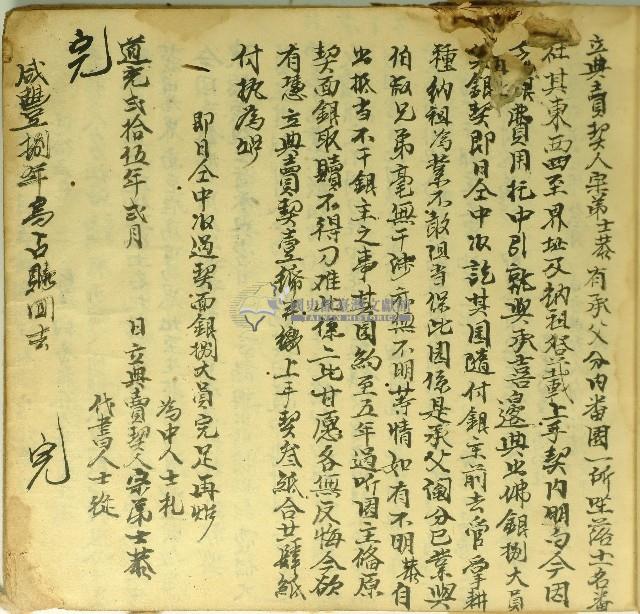 立典賣契人宗弟士恭有承父分內番園一所坐落土名番
在其東西四至界址及納租登載上手契內明白今因
費用托中引就與承喜邊典出佛銀捌大員
銀契即日仝中收訖其園隨付銀主前去管掌耕
種納租為業不敢阻当保此園係是承父鬮分已業與
伯叔兄弟毫無干涉亦無不明等情如有不明恭自
出抵当不干銀主之事其園約至五年過听園主俻原
契面銀取贖不得刁难此係二比甘愿各無反悔今欲
有憑立典賣契壹紙并繳上手契叁紙合共肆紙
付执為炤
一 即日仝中收過契面銀捌大員完足再炤
為中人士札
道光弍拾伍年弍月 日立典賣契人宗弟士恭
代書人士從
完
咸豐捌年為占贖回去 完
國史館臺灣文獻館
TAIWAN HISTORICA